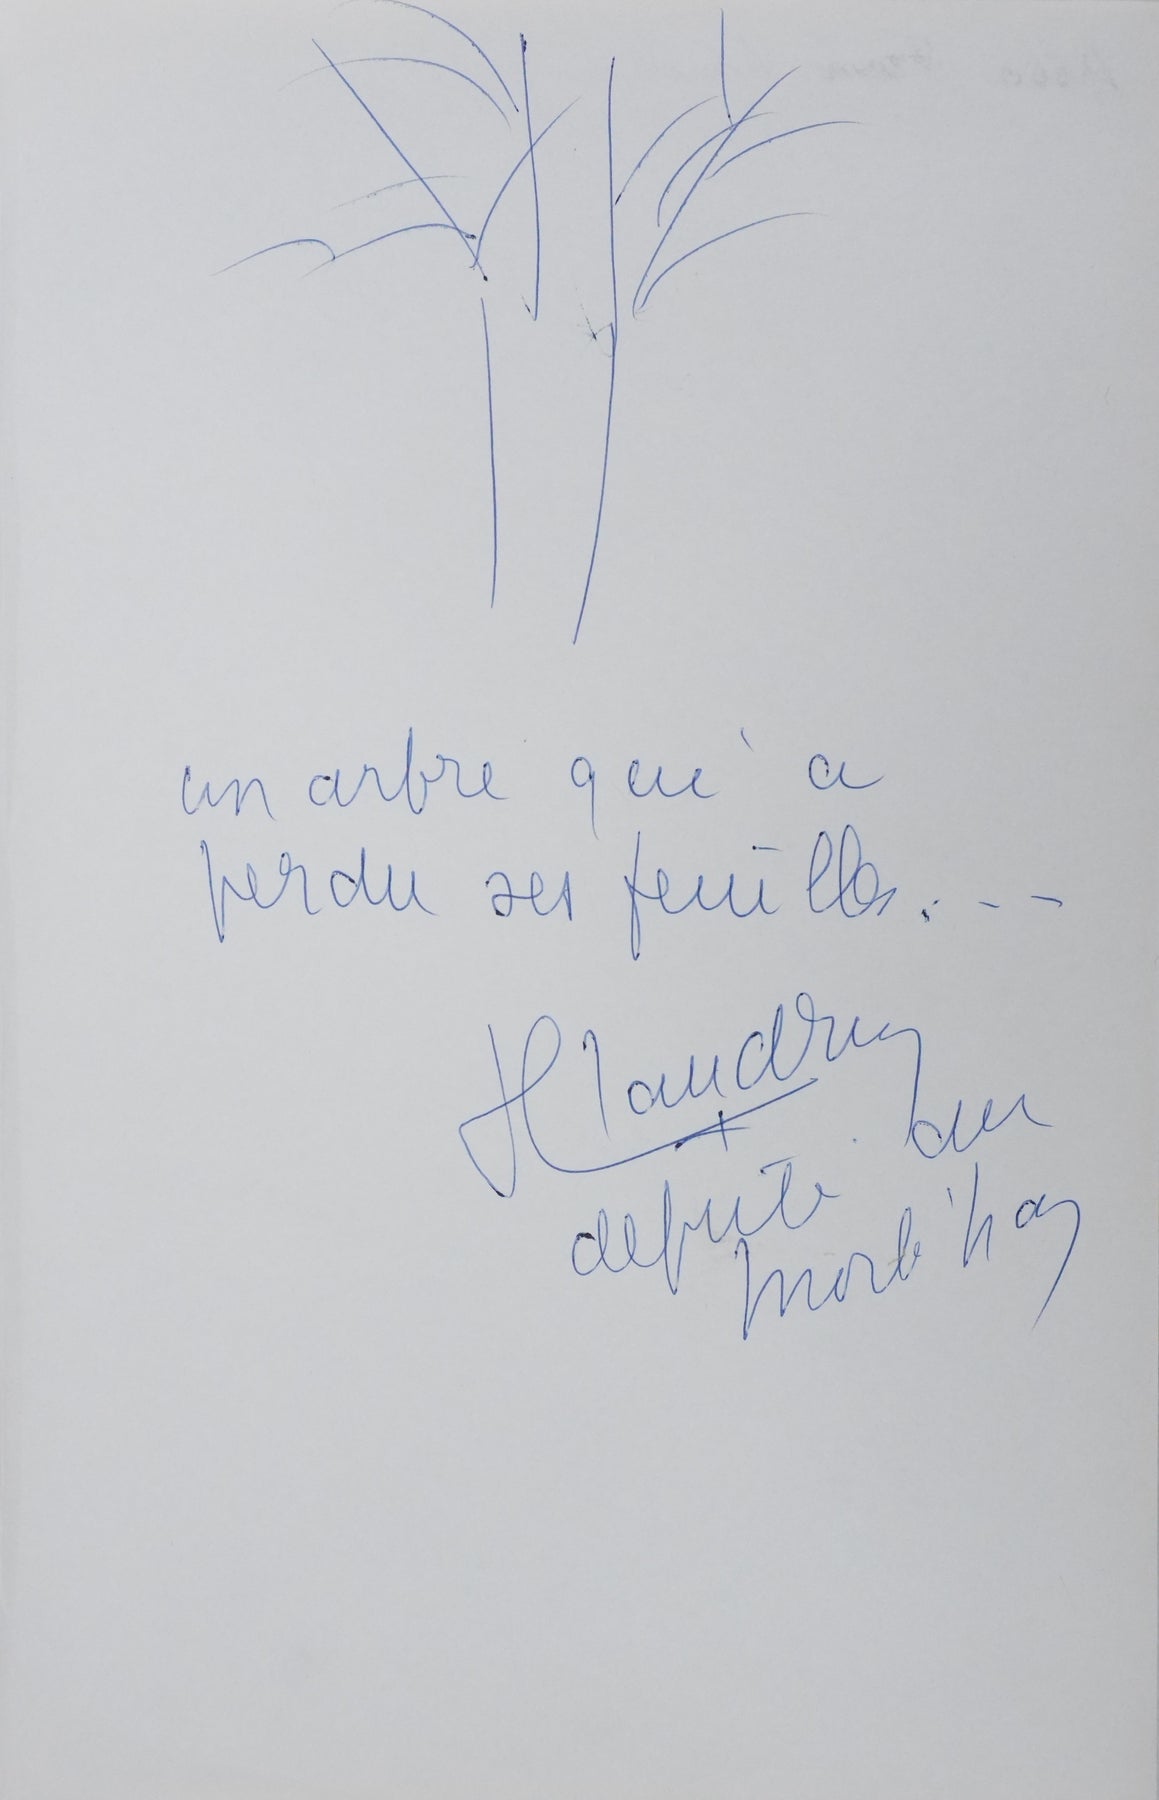 un arbre qui a
perdu ses feuilles. - -
H Laudrin
député du
Morbihan